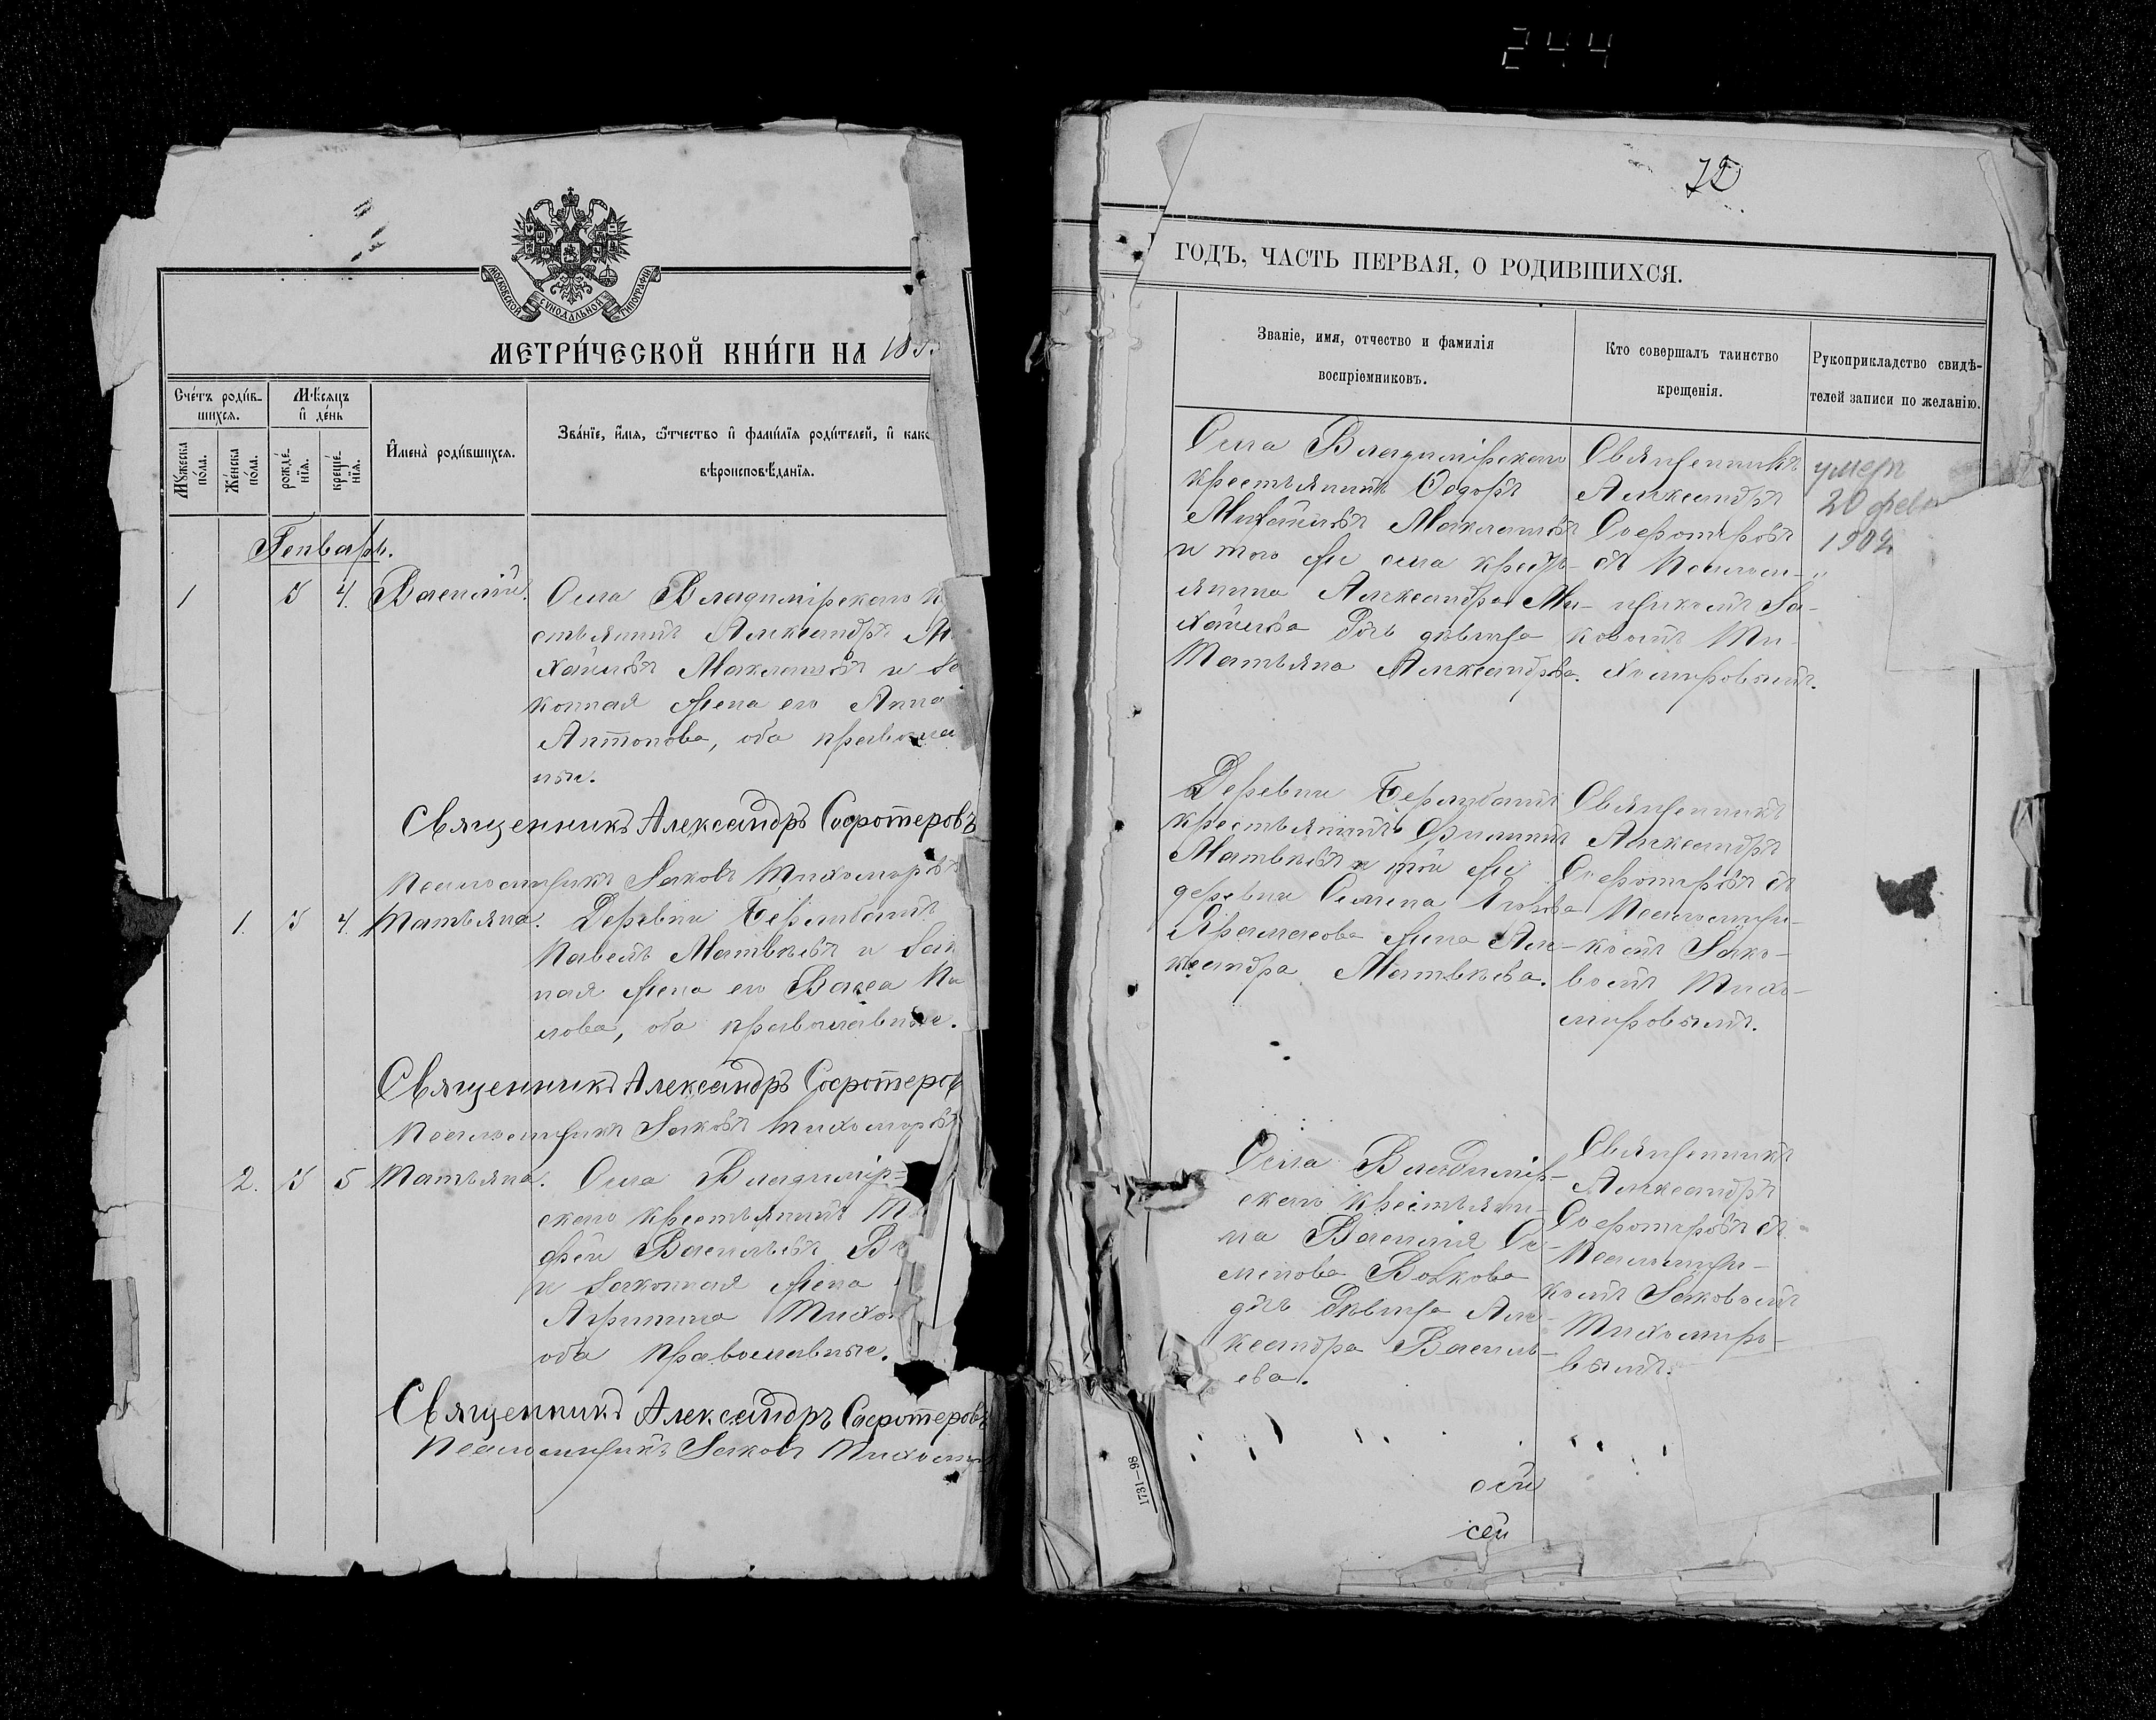 244
72
МОСКОВСКОЙ СѴНОДАЛЬНОЙ ТИПОГРАФІИ
МЕТРИ́ЧЕСКОЙ КНИ́ГИ НА 18
Сче́тъ роди́в-
шихся.
Мѣ́сяцъ
и҆ де́нь
И҆мена̀ роди́вшихся.
Зва́нїе, и҆́мя, ѻ҆́тчество и҆ фами́лїя роди́телей, и҆ како
вѣроисповѣ́данїя.
Мꙋ́жеска
по́ла.
Же́нска
по́ла.
рожде́-
нїя.
креще́-
нїя.
Генварь.
1 3 4. Василій. Села Владимірскаго к
стьянинъ Александръ Ми
хайловъ Маклаковъ и за
конная жена его Анна
Антонова, оба православ
ные.
Священникъ Александръ Сосфотеровъ
Псаломщикъ Яковъ Тихомировъ
1. 3 4. Татьяна. Деревни
Павелъ Матвѣевъ и зак
ная жена его Васса
лова, оба православные.
Священникъ Александръ Сосфотеров
Псаломщикъ Яковъ Тихомировъ
2. 3 5 Татьяна. Села Владимір-
скаго крестьянинъ Ти
фей Васильевъ
и законная жена
Агрипина Тихо
оба православные.
Священникъ Александръ Сосфотеровъ
Псаломщикъ Яковъ Тихомир
ГОДЪ, ЧАСТЬ ПЕРВАЯ, О РОДИВШИХСЯ.
Званіе, имя, отчество и фамилія
воспріемниковъ.
Кто совершалъ таинство
крещенія.
Рукоприкладство свидѣ-
телей записи по желанію.
Села Владимірскаго
крестьянинъ Ѳедоръ
Михайловъ Маклаковъ
и того же села кресть-
янина Александра Ми-
хайлова дочь дѣвица
Татьяна Александрова.
Священникъ
Александръ
Сосфотеровъ
съ Псалом-
щикомъ Яковомъ
Тихомировымъ.
умеръ
20 февр
1902
Деревни
крестьянинъ Филиппъ
Матвѣевъ и той же
деревни Семена
жена Але-
ксандра Матвѣева.
Священникъ
Александръ
Сосфотеровъ съ
Псаломщи-
комъ Яко-
вомъ Тихо-
мировымъ.
Села Владимір-
скаго крестьяни-
на Василія Се-
менова Волкова
дочь дѣвица Але-
ксандра Василь-
ева.
Священникъ
Александръ
Сосфотеровъ съ
Псаломщи-
комъ Яковомъ
Тихомиро-
вымъ.
1731—98
сей